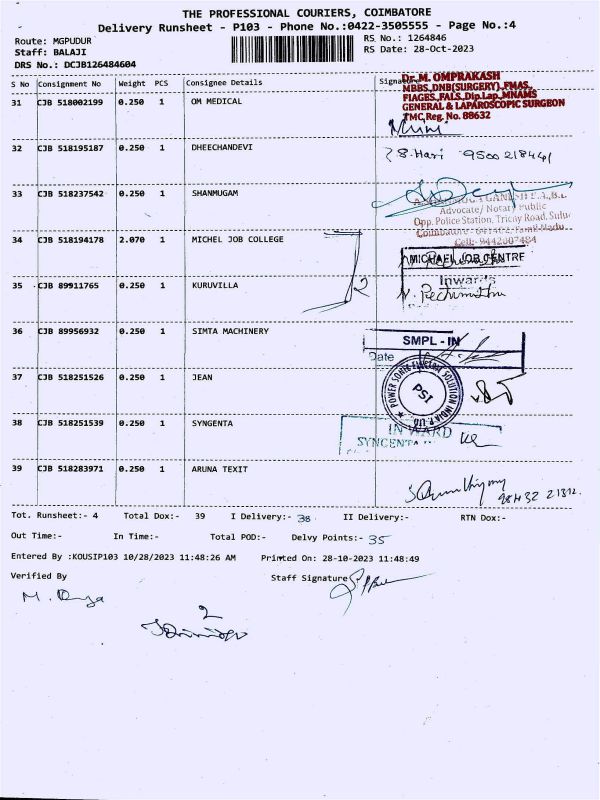 THE PROFESSIONAL COURIERS, COIMBATORE
Delivery Runsheet - P103 - Phone No.:0422-3505555 - Page No.:4
Route: MGPUDUR
RS No.: 1264846
Staff: BALAJI
RS Date: 28-Oct-2023
DRS No.: DCJB126484604
S No Consignment No Weight PCS Consignee Details Signa
Dr. M. OMPRAKASH
MBBS.,DNB(SURGERY).,FMAS.,
FIAGES.,FALS.,Dip.Lap.,MNAMS
GENERAL & LAPAROSCOPIC SURGEON
TMC.Reg. No. 88632
31 CJB 518002199 0.250 1 OM MEDICAL
32 CJB 518195187 0.250 1 DHEECHANDEVI
Hari
33 CJB 518237542 0.250 1 SHANMUGAM
Advocate/ Notary Public
Opp. Police Station, Trichy Road, Sulu
Coimbatore - 641402, Tamil Nadu
Cell: 9442007484
34 CJB 518194178 2.070 1 MICHEL JOB COLLEGE
MICHAEL JOB CENTRE
Inwards
35 CJB 89911765 0.250 1 KURUVILLA
2
36 CJB 89956932 0.250 1 SIMTA MACHINERY
SMPL - IN
Date
37 CJB 518251526 0.250 1 JEAN
POWER SONIC ELECTRIC SOLUTION INDIA P LTD
PSI
38 CJB 518251539 0.250 1 SYNGENTA
INWARD
SYNGENTA
39 CJB 518283971 0.250 1 ARUNA TEXIT
Tot. Runsheet:- 4 Total Dox:- 39 I Delivery:- 38 II Delivery:- RTN Dox:-
Out Time:- In Time:- Total POD:- Delvy Points:- 35
Entered By :KOUSIP103 10/28/2023 11:48:26 AM Printed On: 28-10-2023 11:48:49
Verified By
Staff Signature
2